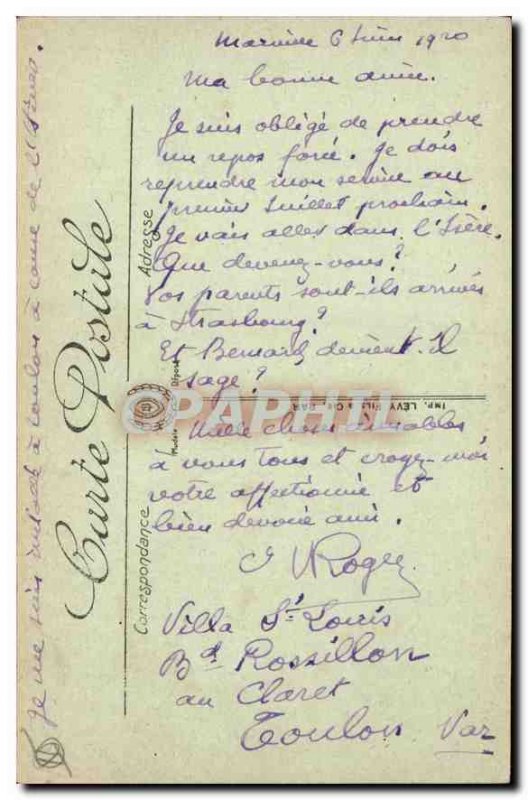 6 Juin 1920
Ma bonne amie.
Je suis obligé de prendre
un repos forcé. Je dois
reprendre mon service au
premier Juillet prochain.
Je vais aller dans l'Isère.
Que devenez-vous?
Vos parents sont-ils arrivés
à Strasbourg?
Et Bernard devient-il
sage?
Mille choses aimables
à vous tous et croyez-moi
votre affectionné et
bien dévoué ami.
Roger
Villa St Louis
Bd Rossillon
au Claret
Toulon Var
Je me suis à Toulon à cause de
Carte Postale
Adresse
Correspondance
Modèle Déposé
IMP. LÉVY FILS & Cie PAR
CPAPHIL